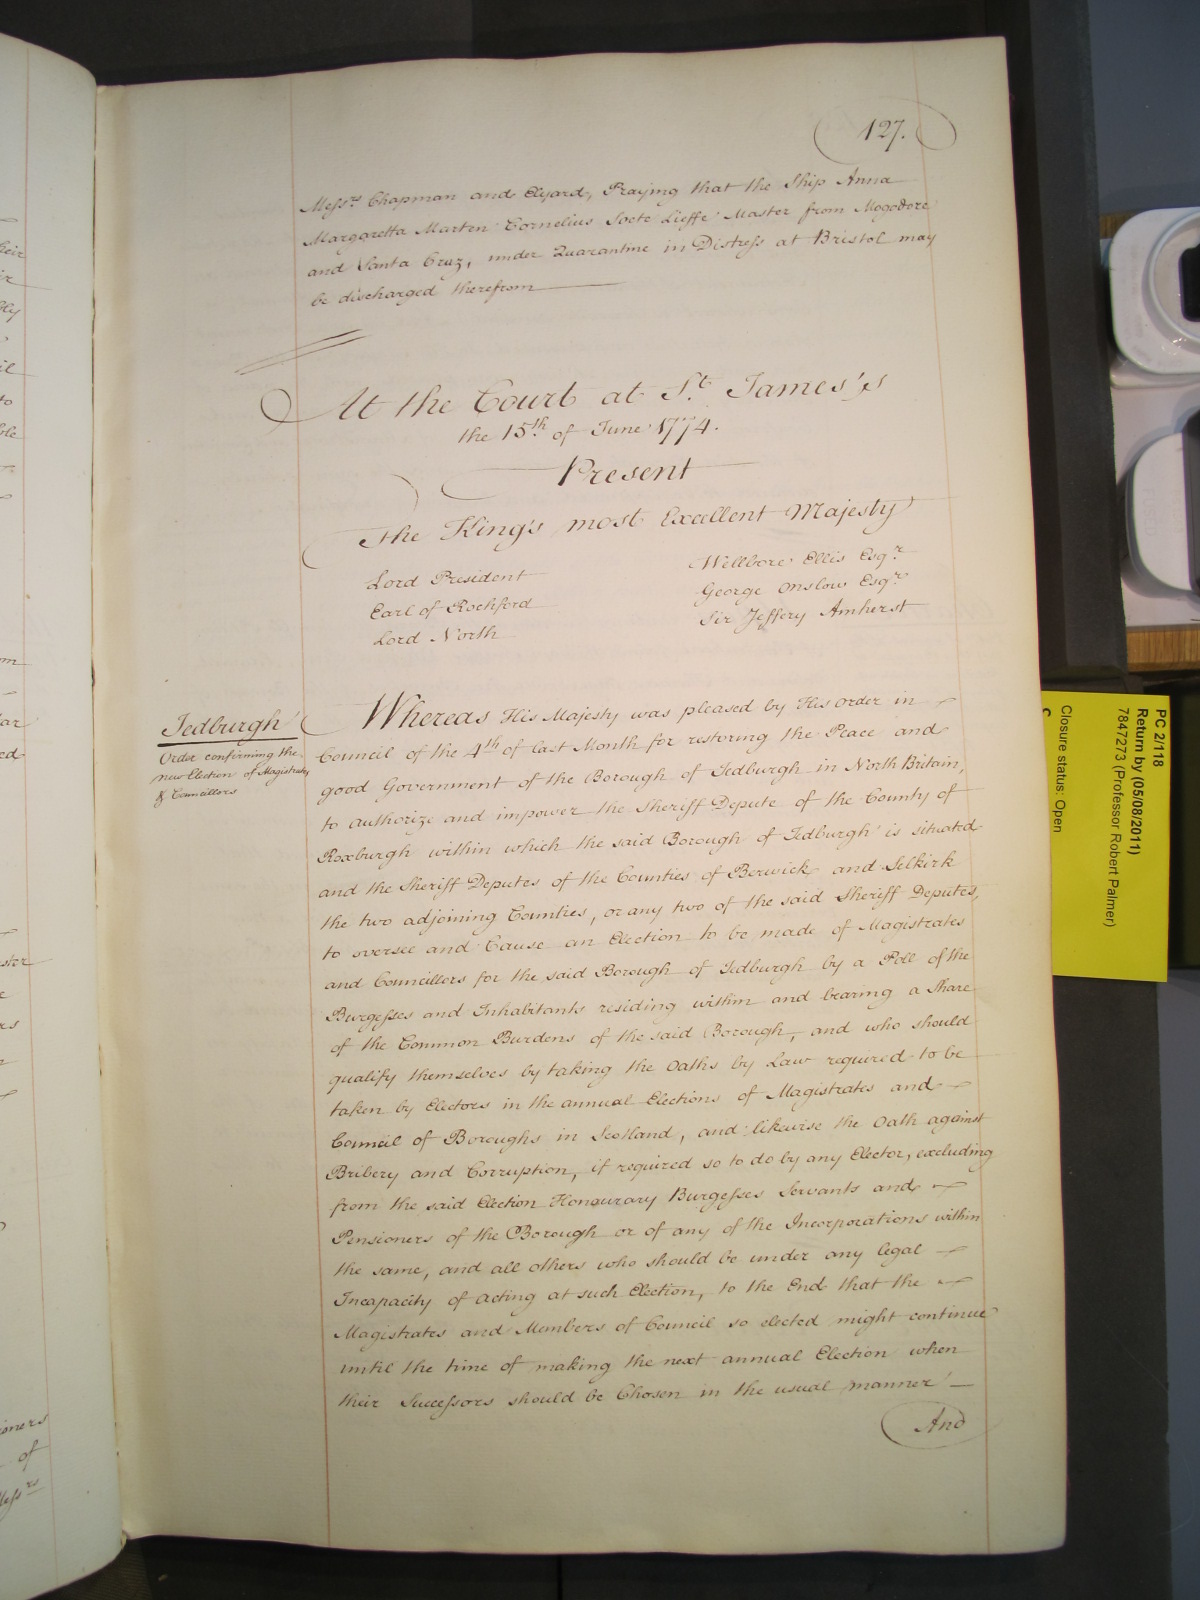 127.
Messrs. Chapman and Elyard, Praying that the Ship Anna
Margaretta Marten Cornelius Soete Lieffe Master from Mogodore
and Santa Cruz, under Quarantine in Distress at Bristol may
be discharged therefrom
At the Court at St. James's
the 15th of June 1774.
Present
The King's most Excellent Majesty
Lord President
Earl of Rochford
Lord North
Wellbore Ellis Esqr.
George Onslow Esqr.
Sir Jeffery Amherst
Jedburgh
Order confirming the
new Election of Magistrates
& Councillors
Whereas His Majesty was pleased by His Order in
Council of the 4th of last Month for restoring the Peace and
good Government of the Borough of Jedburgh in North Britain,
to authorize and impower the Sheriff Depute of the County of
Roxburgh within which the said Borough of Jedburgh is situated
and the Sheriff Deputes of the Counties of Berwick and Selkirk
the two adjoining Counties, or any two of the said Sheriff Deputes,
to oversee and Cause an Election to be made of Magistrates
and Councillors for the said Borough of Jedburgh by a Poll of the
Burgesses and Inhabitants residing within and bearing a Share
of the Common Burdens of the said Borough, and who should
qualify themselves by taking the Oaths by Law required to be
taken by Electors in the annual Elections of Magistrates and
Council of Boroughs in Scotland, and likewise the Oath against
Bribery and Corruption, if required so to do by any Elector, excluding
from the said Election Honourary Burgesses Servants and
Pensioners of the Borough or of any of the Incorporations within
the same, and all others who should be under any legal
Incapacity of acting at such Election, to the End that the
Magistrates and Members of Council so elected might continue
until the time of making the next annual Election when
their Successors should be Chosen in the usual manner
And
PC 2/118
Return by (05/08/2011)
7847273 (Professor Robert Palmer)
Closure status: Open